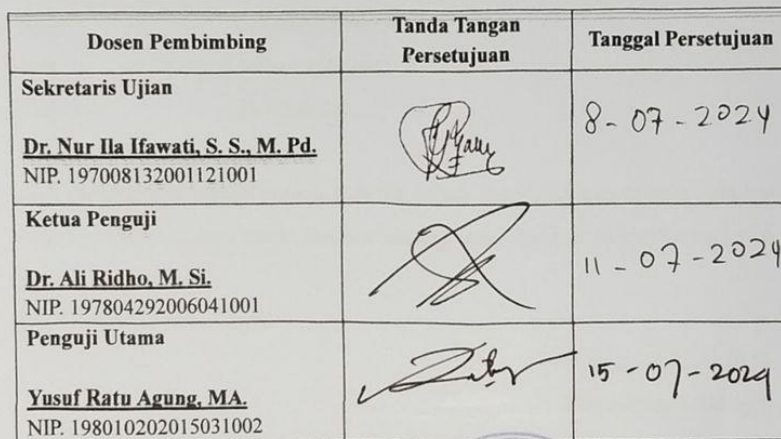 Dosen Pembimbing
Tanda Tangan
Persetujuan
Tanggal Persetujuan
Sekretaris Ujian
Dr. Nur Ila Ifawati, S. S., M. Pd.
NIP. 197008132001121001
8-07-2024
Ketua Penguji
Dr. Ali Ridho, M. Si.
NIP. 197804292006041001
11-07-2024
Penguji Utama
Yusuf Ratu Agung, MA.
NIP. 198010202015031002
15-07-2024